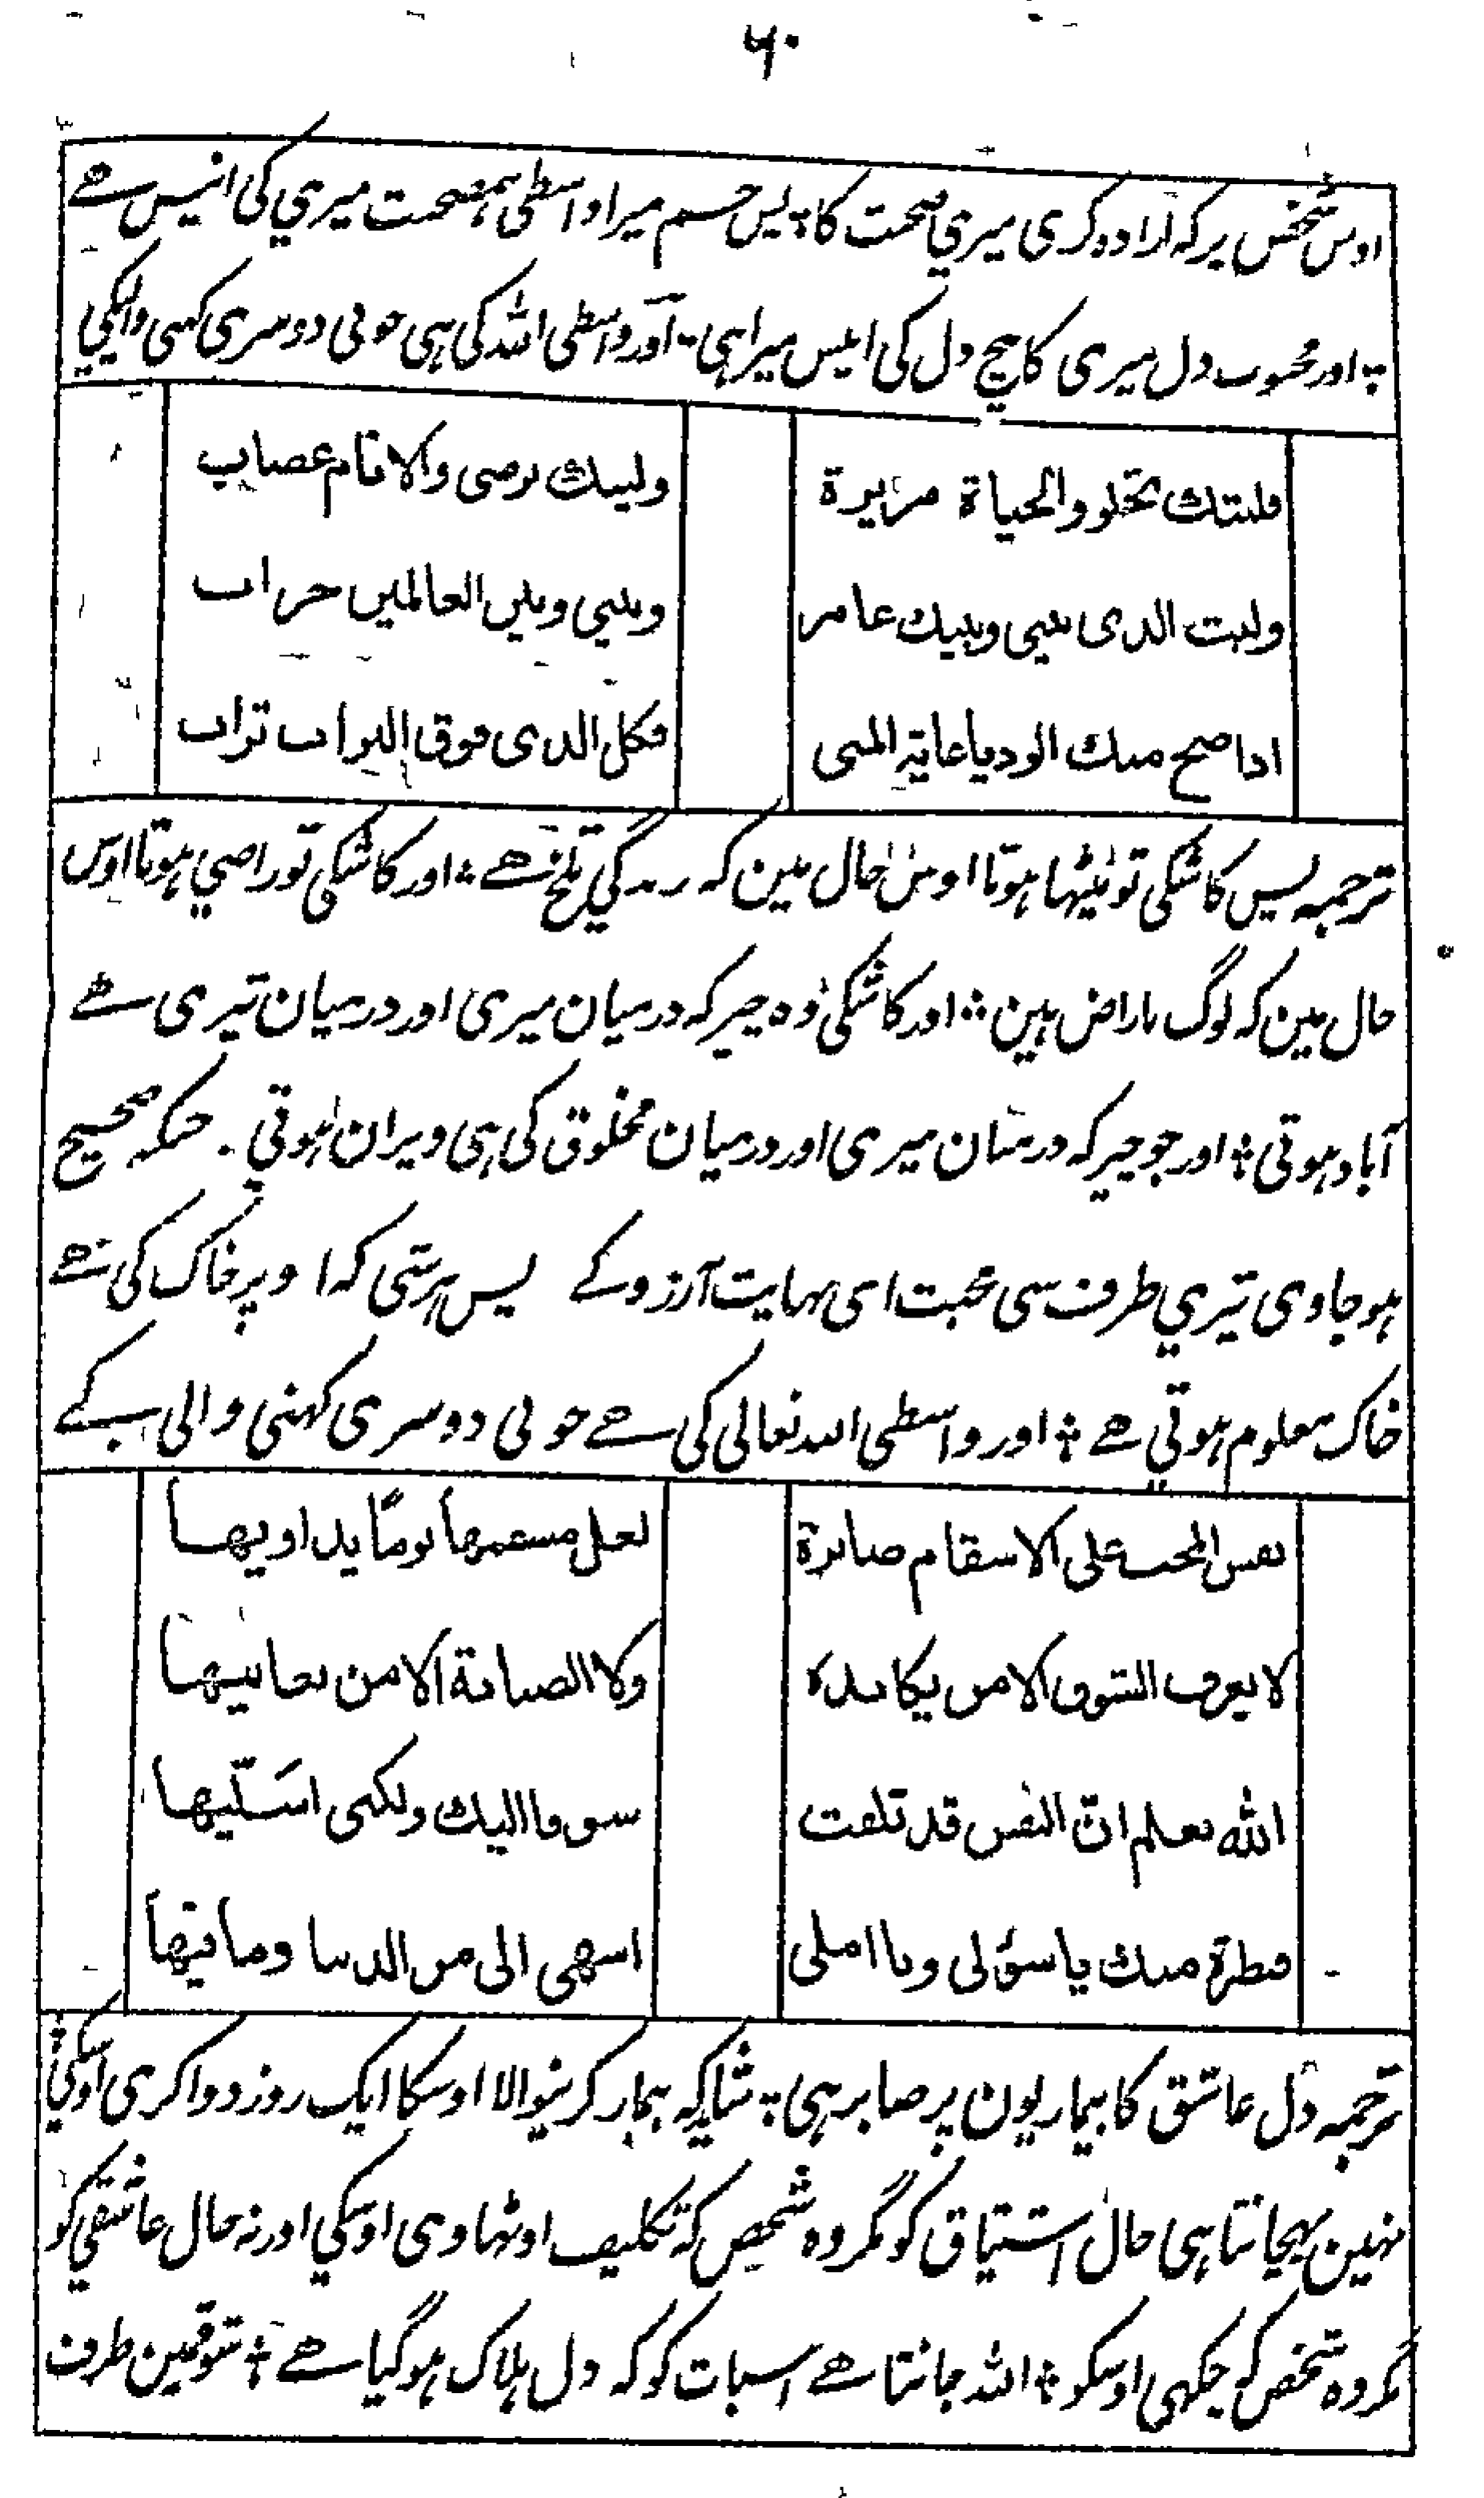 ۶۰
اوس شخص پر که ارادہ کری میری صحبت کا ؞ پس جسم میرا واسطی ہمصحبت میری کی انیس ہے
؞ اور محبوب دل میری کا بیچ دل کی انیس میرا ہی ؞ اور واسطی اللہ کی ہی خوبی دوسری کہنی والیکي
فليتك تحلو والحياة مريرة
وليتك ترضى والانام غضاب
وليت الذى بينى وبينك عامر
وبيني وبين العالمين خراب
اذا صح منك الود ياغاية المنى
فكل الذى فوق التراب تراب
ترجمہ پس کاشکی تو میٹھا ہوتا اوس حال مین کہ زندگي تلخ ہے ؞ اور کاشکی تو راضي ہوتا اوس
حال مین کہ لوگ ناراض ہین ؞ اور کاشکی وہ چیز کہ درمیان میری اور درمیان تیری ہے
آباد ہوتی ؞ اور جو چیز کہ درمیان میری اور درمیان مخلوق کی ہی ویران ہوتي ۔ جبکہ صحیح
ہو جاوی تیري طرف سی محبت ای نہایت آرزو کے پس ہر شی کہ اوپر خاک کی ہے
خاک معلوم ہوتي ہے ؞ اور واسطی اللہ تعالی کی ہے خوبی دوسری کہنی والی کے
نفس المحب على الاسقام صابرة
لعل مسقمها يومًا يداويها
لا يعرف الشوق الا من يكابده
ولا الصبابة الا من يعانيها
الله يعلم انّ النفس قد تلفت
شوقا اليك ولكنى اسَلّيها
فنظرة منك ياسؤلى وياأملى
اشهى الى من الدنيا ومافيها
ترجمہ دل عاشق کا بیماریون پر صابر ہی ؞ شاید کہ بیمار کرنیوالا اوسکا ایک روز دوا کری اوسکي ؞
نہین پہچانتا ہی حال اشتیاق کو مگر وہ شخص کہ تکلیف اوٹھاوی اوسکي اور نہ حال عاشقي کو
مگر وہ شخص کہ چکہی اوسکو ؞ اللہ جانتا ہے اسبات کو کہ دل ہلاک ہوگیا ہے ؞ شوقمین طرف